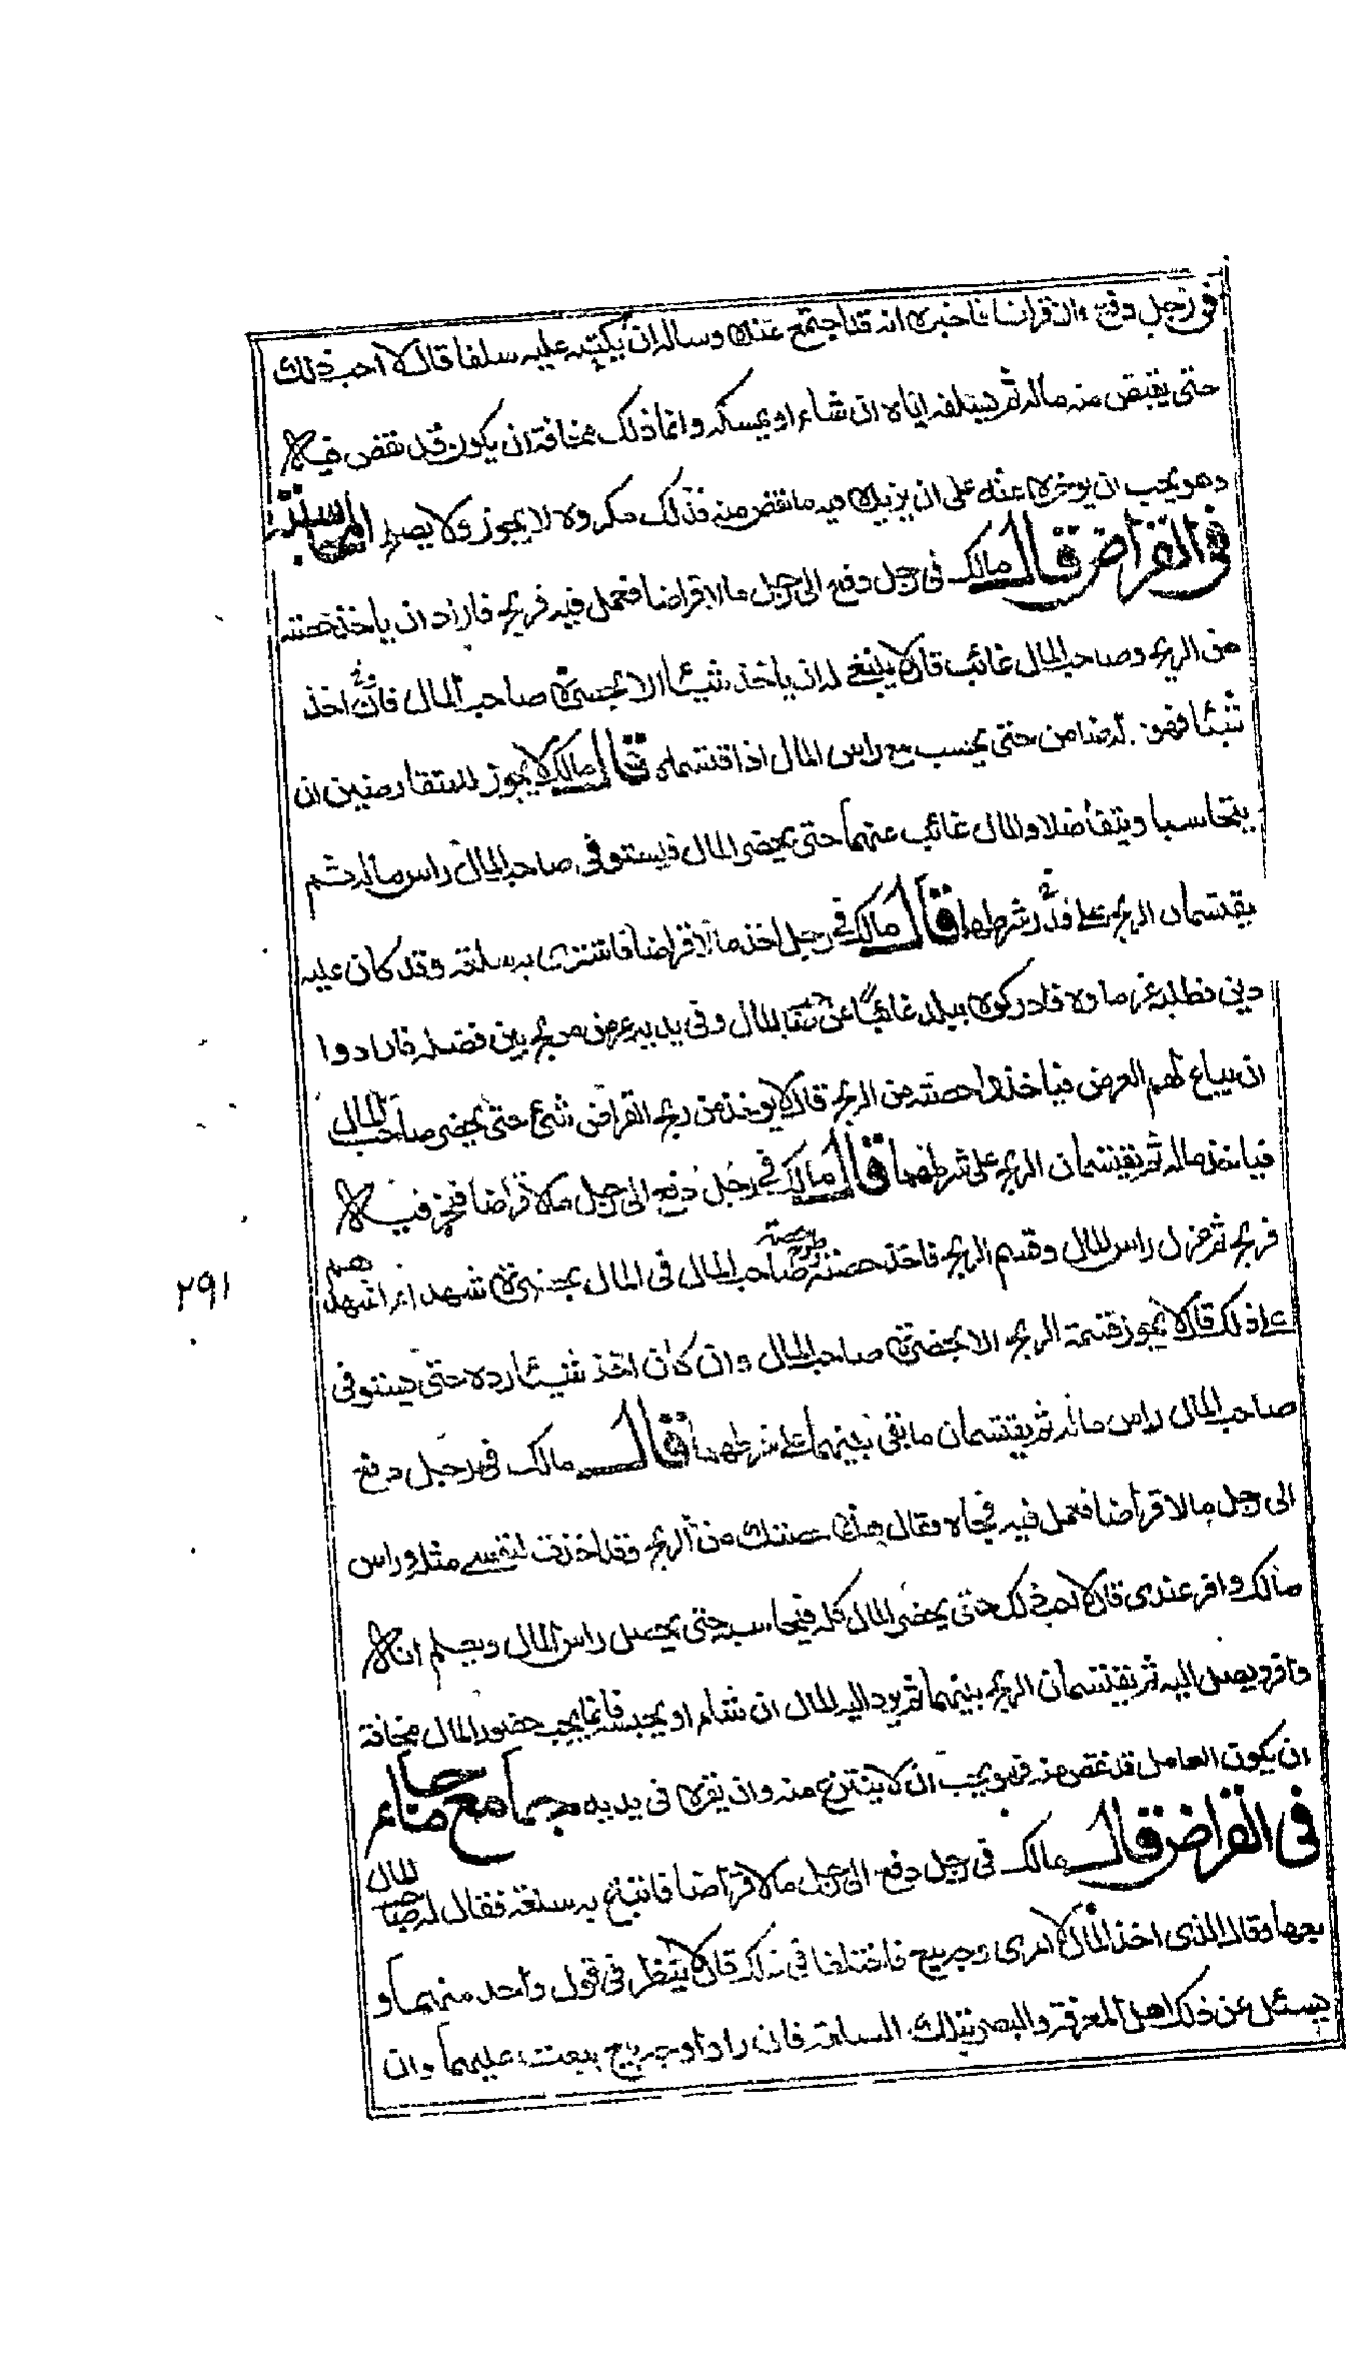 في رجل دفع قراضا فاخبره انه قد اجتمع عنده وساله ان يكتبه عليه سلفا قال لا احب ذلك
حتى يقبض منه ماله ثم يسلفه اياه ان شاء او يمسكه وانما ذلك مخافة ان يكون قد نقص فيه
وهو يحب ان يوخره عنه على ان يزيده فيه ما نقص منه فذلك مكروه ولا يجوز ولا يصلح المحاسبة
في القراض قال مالك في رجل دفع الى رجل مالا قراضا فعمل فيه فربح فاراد ان ياخذ حصته
من الربح وصاحب المال غائب قال لا ينبغي له ان ياخذ شيئا الا بحضرة صاحب المال فان اخذ
شيئا فهو له ضامن حتى يحسب مع راس المال اذا اقتسماه قال مالك لا يجوز للمتقارضين ان
يتحاسبا ويتفاضلا والمال غائب عنهما حتى يحضر المال فيستوفي صاحب المال راس ماله ثم
يقتسمان الربح على شرطهما قال مالك في رجل اخذ مالا قراضا فاشترى به سلعة وقد كان عليه
دين فطلبه غرماوه فادركوه ببلد غائبا عن صاحب المال وفي يديه عرض مربح بين فضله فارادوا
ان يباع لهم العرض فياخذوا حصته من الربح قال لا يوخذ من ربح القراض شئ حتى يحضر صاحب المال
فياخذ ماله ثم يقتسمان الربح على شرطهما قال مالك في رجل دفع الى رجل مالا قراضا فتجر فيه
فربح ثم عزل راس المال وقسم الربح فاخذ حصته وطرح حصة صاحب المال في المال بحضرة شهداء اشهدهم
على ذلك قال لا يجوز قسمة الربح الا بحضرة صاحب المال وان كان اخذ شيئا رده حتى يستوفي
صاحب المال راس ماله ثم يقتسمان ما بقي بينهما على شرطهما قال مالك في رجل دفع
الى رجل مالا قراضا فعمل فيه فجاه فقال هذه حصتك من الربح وقد اخذت لنفسي مثله وراس
مالك وافر عندي قال لا احب ذلك حتى يحضر المال كله فيحاسبه حتى يحصل راس المال ويعلم انه
وافر ويصل اليه ثم يقتسمان الربح بينهما ثم يرد اليه المال ان شاء او يحبسه فانما يجب حضور المال مخافة
ان يكون العامل قد نقص منه فهو يحب ان لا ينتزع منه وان يقره في يديه جامع ما جاء
في القراض قال مالك في رجل دفع الى رجل مالا قراضا فابتاع به سلعة فقال له صاحب المال
بعها وقال الذي اخذ المال لا ارى وجه بيع فاختلفا في ذلك قال لا ينظر في قول واحد منهما و
يسئل عن ذلك اهل المعرفة والبصر بتلك السلعة فان راوا وجه بيع بيعت عليهما وان
٢٩١